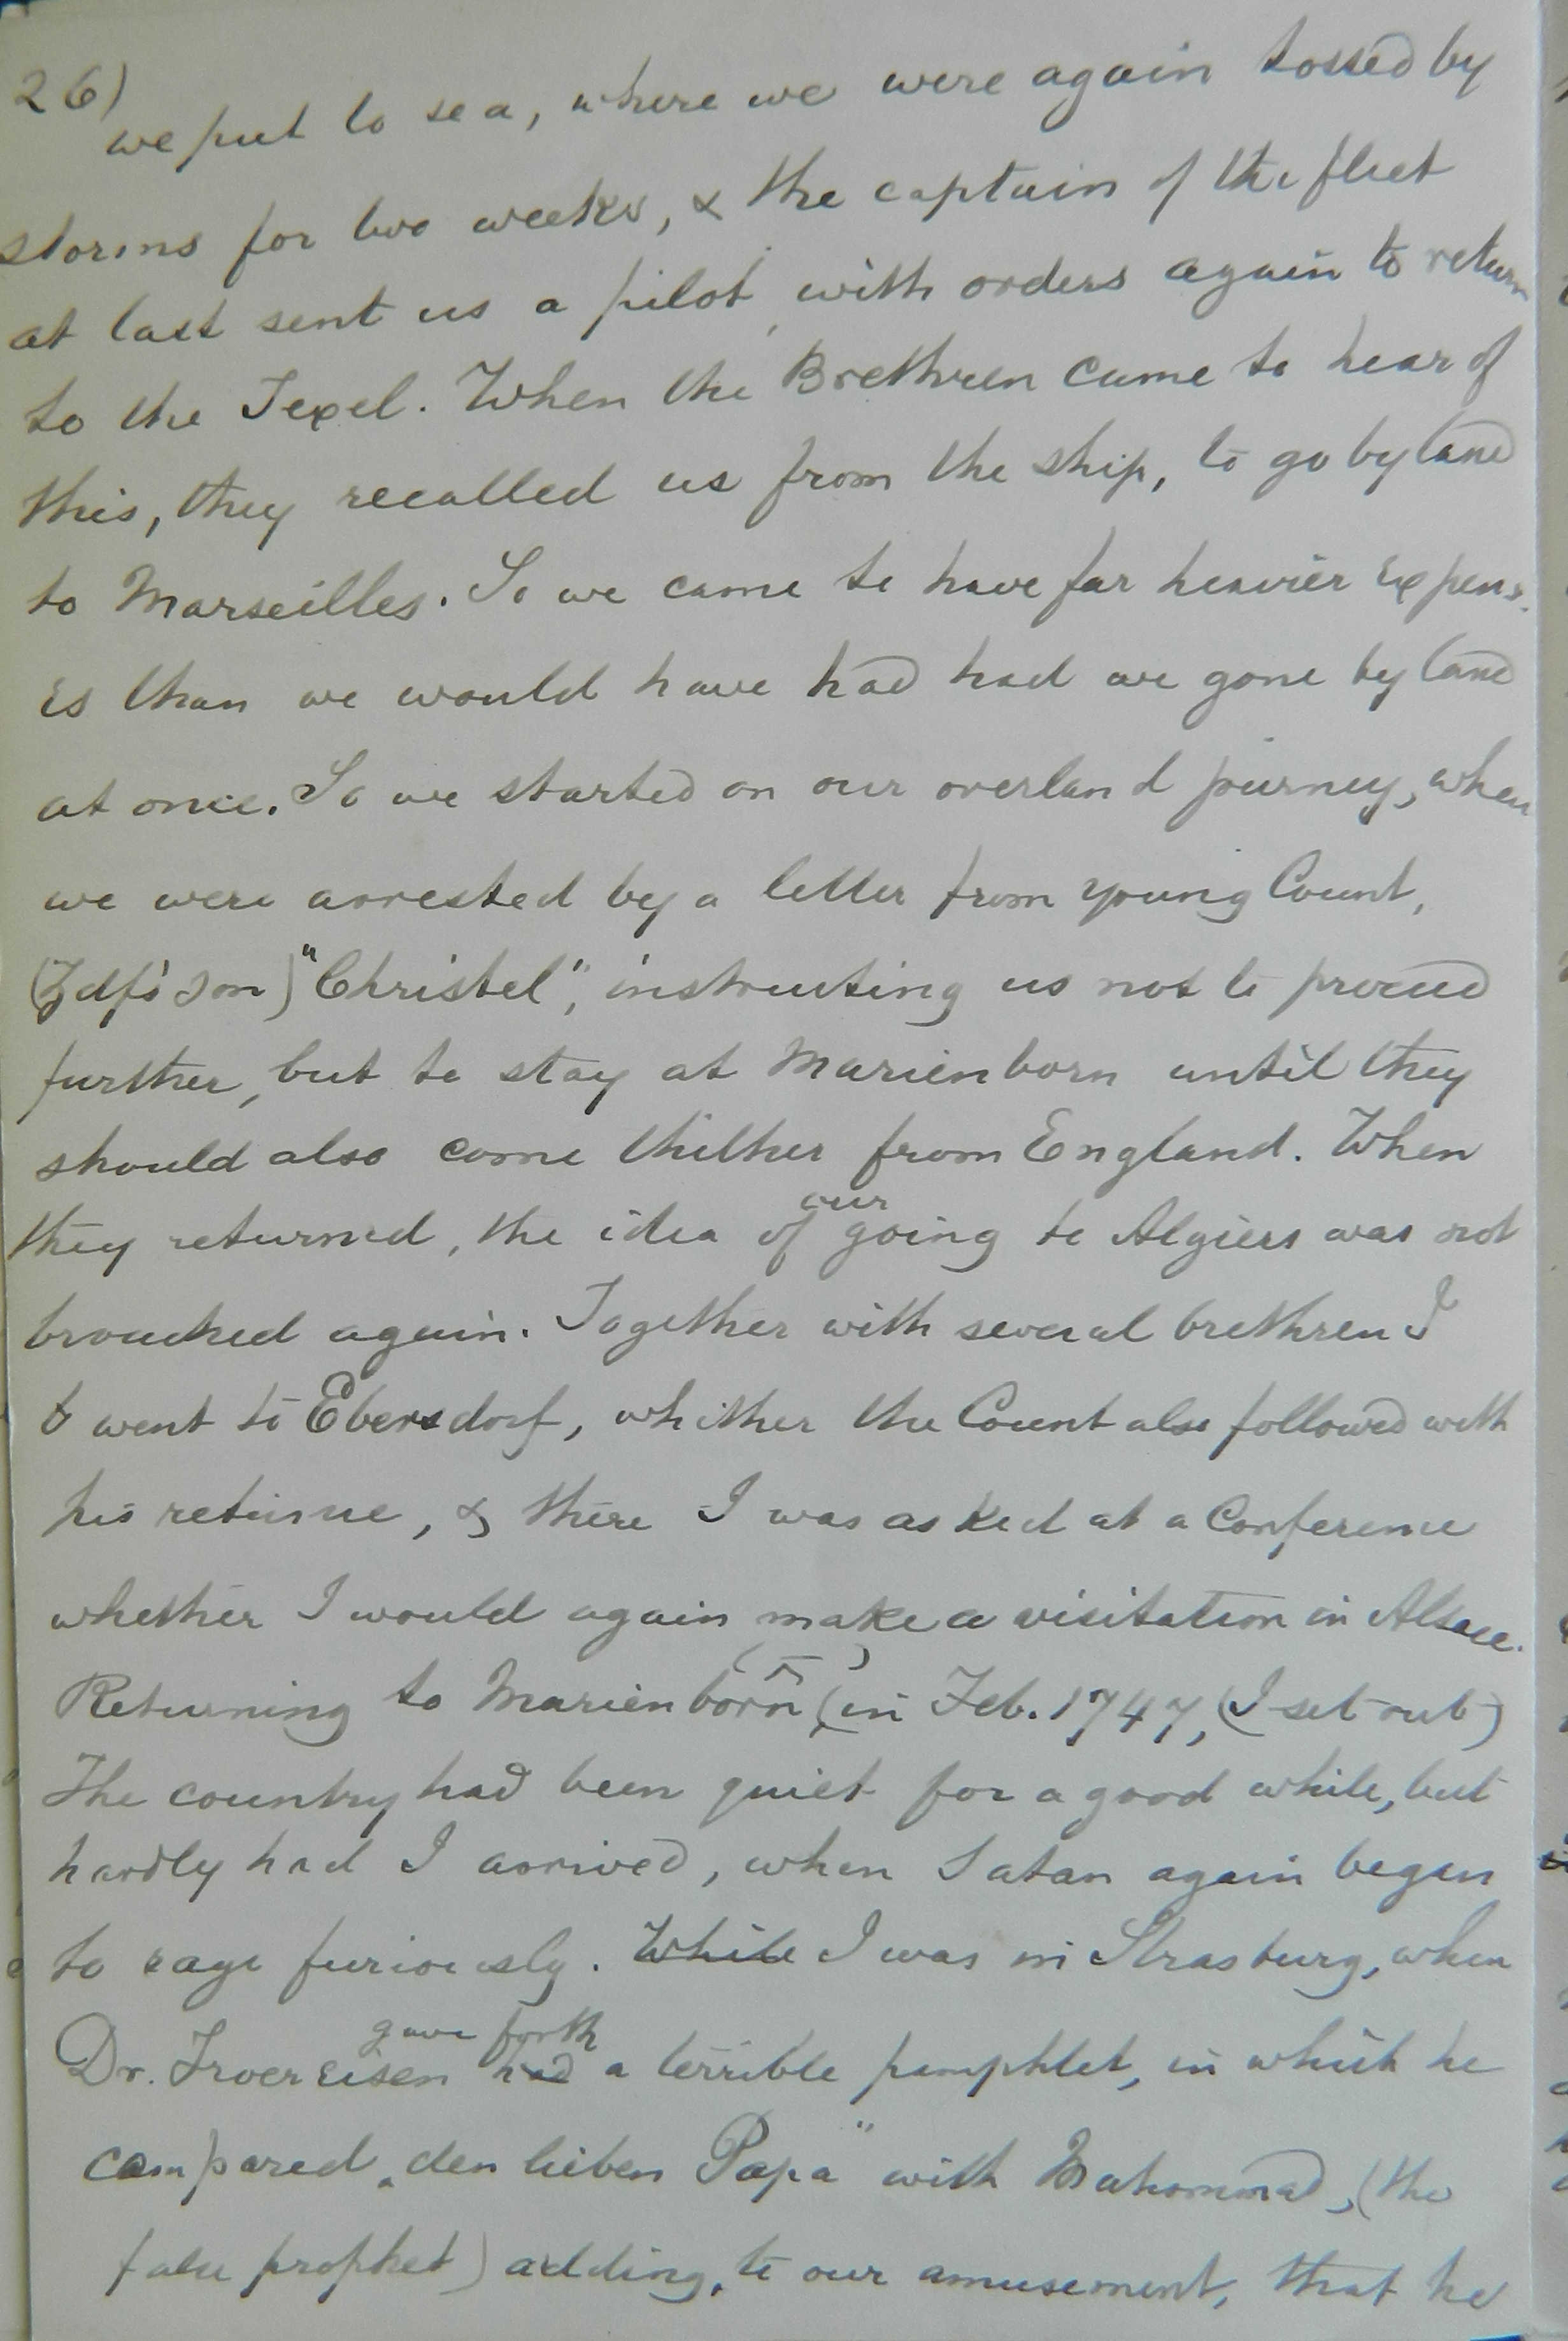 26)
we put to sea, where we were again tossed by
storms for two weeks, & the captain of the fleet
at last sent us a pilot, with orders again to return
to the Texel. When the Brethren came to hear of
this, they recalled us from the ship, to go by land
to Marseilles. So we came to have far heavier expens-
es than we would have had had we gone by land
at once. So we started on our overland journey, when
we were arrested by a letter from young Count,
(Zdf's son) "Christel", instructing us not to proceed
further, but to stay at Marienborn until they
should also come thither from England. When
they returned, the idea of our going to Algiers was not
broached again. Together with several brethren I
went to Ebersdorf, whither the Count also followed with
his retinue, & there I was asked at a Conference
whether I would again make a visitation in Alsace.
Returning to Marienborn (in Feb. 1747, (I set out)
The country had been quiet for a good while, but
hardly had I arrived, when Satan again began
to rage furiously. While I was in Strasburg, when
Dr. Froereisen had gave forth a terrible pamphlet, in which he
compared „den lieben Papa" with Mahommad, (the
false prophet) adding, to our amusement, that he